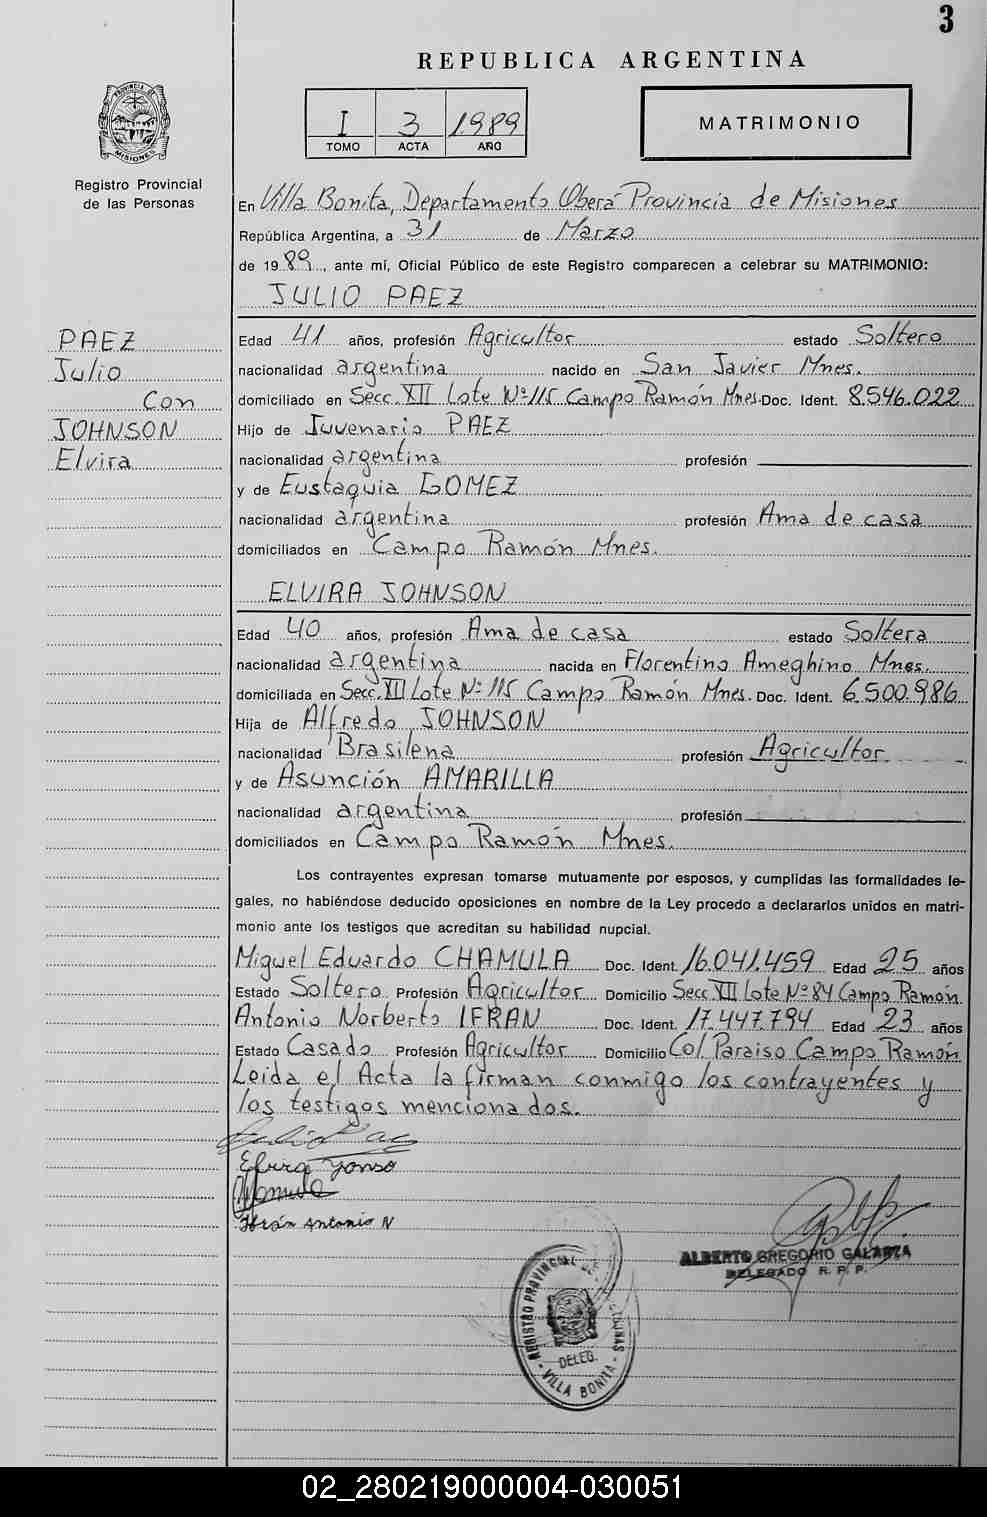 3
REPUBLICA ARGENTINA
I 3 1989
TOMO ACTA AÑO
MATRIMONIO
PROVINCIA DE MISIONES
Registro Provincial
de las Personas
En Villa Bonita, Departamento Oberá Provincia de Misiones
República Argentina, a 31 de Marzo
de 1989, ante mí, Oficial Público de este Registro comparecen a celebrar su MATRIMONIO:
JULIO PAEZ
PAEZ
Julio
Con
JOHNSON
Elvira
Edad 41 años, profesión Agricultor estado Soltero
nacionalidad argentina nacido en San Javier Mnes.
domiciliado en Secc. XII Lote Nº 115 Campo Ramón Mnes. Doc. Ident. 8.546.022
Hijo de Juvenario PAEZ
nacionalidad argentina profesión
y de Eustaquia GOMEZ
nacionalidad argentina profesión Ama de casa
domiciliados en Campo Ramón Mnes.
ELVIRA JOHNSON
Edad 40 años, profesión Ama de casa estado Soltera
nacionalidad argentina nacida en Florentino Ameghino Mnes.
domiciliada en Secc. XII Lote Nº 115 Campo Ramón Mnes. Doc. Ident. 6.500.986
Hija de Alfredo JOHNSON
nacionalidad Brasilena profesión Agricultor
y de Asunción AMARILLA
nacionalidad argentina profesión
domiciliados en Campo Ramón Mnes.
Los contrayentes expresan tomarse mutuamente por esposos, y cumplidas las formalidades le-
gales, no habiéndose deducido oposiciones en nombre de la Ley procedo a declararlos unidos en matri-
monio ante los testigos que acreditan su habilidad nupcial.
Miguel Eduardo CHAMULA Doc. Ident. 16.041.459 Edad 25 años
Estado Soltero Profesión Agricultor Domicilio Secc XII Lote Nº 84 Campo Ramón
Antonio Norberto IFRAN Doc. Ident. 17.447.794 Edad 23 años
Estado Casado Profesión Agricultor Domicilio Col Paraiso Campo Ramón
Leida el Acta la firman conmigo los contrayentes y
los testigos mencionados.
Elvira Yonso
Ifrán Antonio N
ALBERTO GREGORIO GALARZA
DELEGADO R. P. P.
REGISTRO PROVINCIAL DE
DELEG.
- VILLA BONITA -
02_280219000004-030051